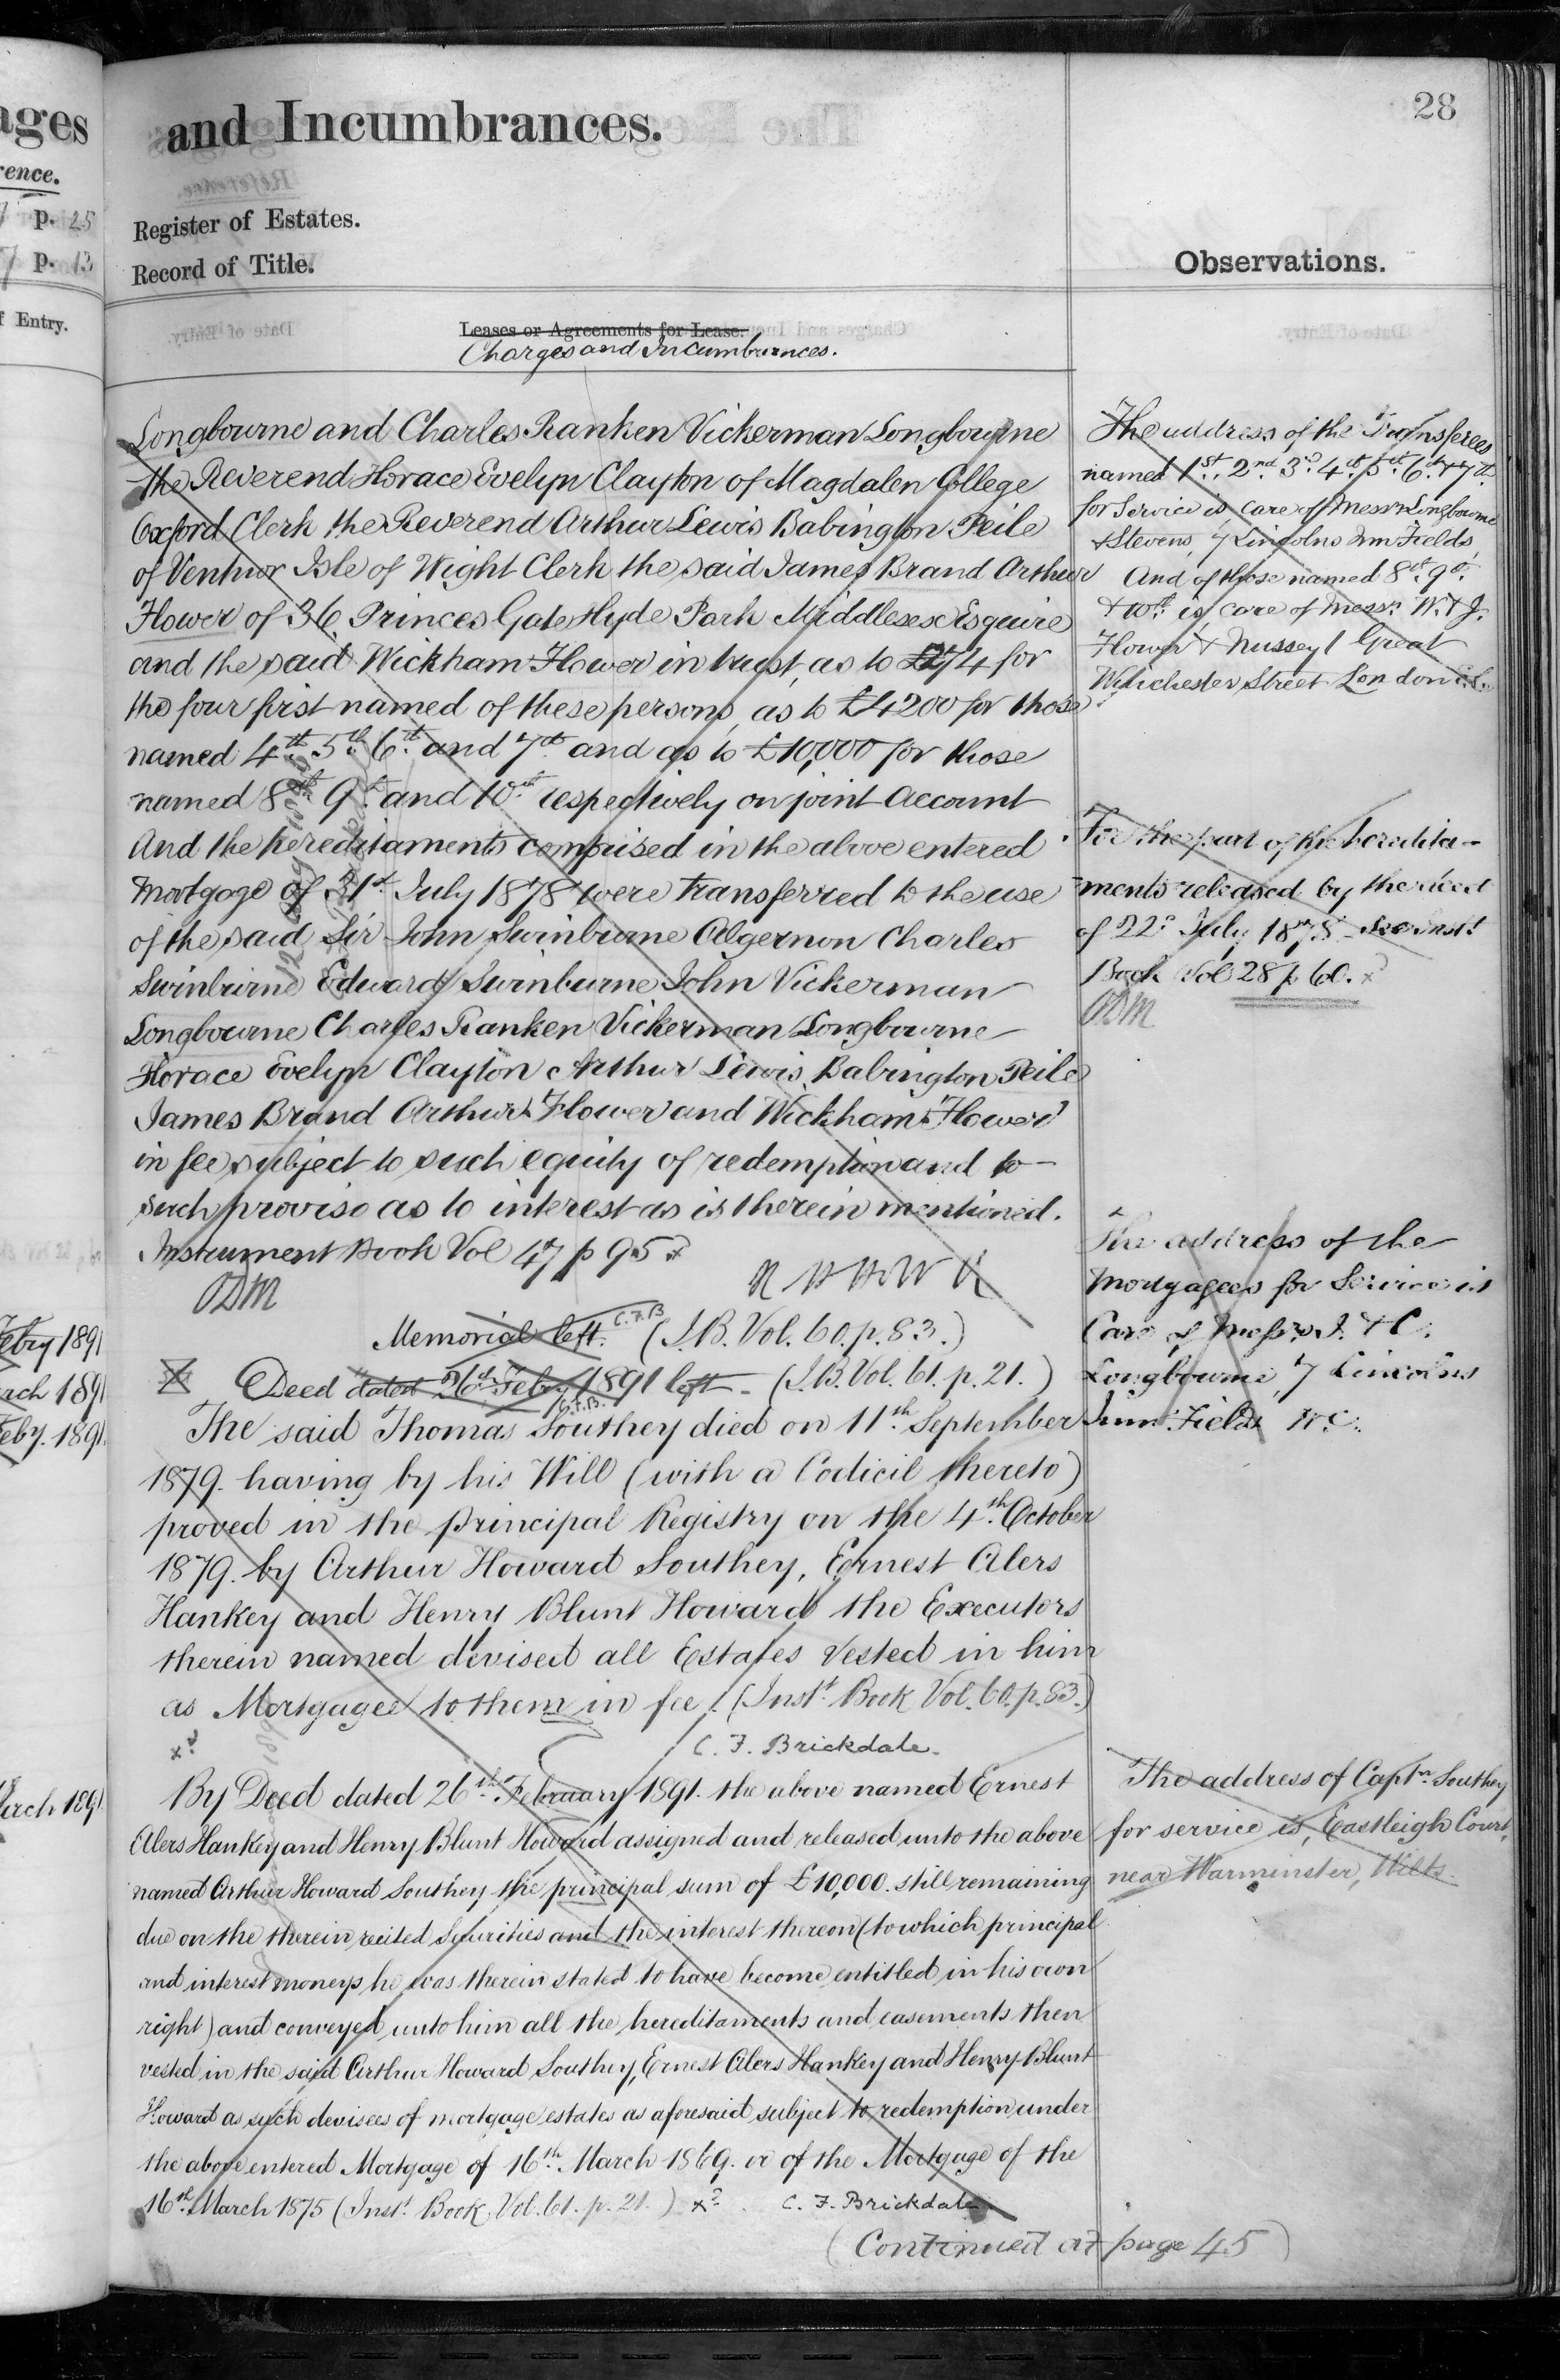 ages
and Incumbrances.
28
rence.
p. 25
Register of Estates.
p. 13
Record of Title.
Observations.
f Entry.
Leases or Agreements for Lease.
Charges and Incumbrances.
Longbourne and Charles Ranken Vickerman Longbourne
the Reverend Horace Evelyn Clayton of Magdalen College
Oxford Clerk the Reverend Arthur Lewis Babington Peile
of Ventnor Isle of Wight Clerk the said James Brand Arthur
Flower of 36 Princes Gate Hyde Park Middlesex Esquire
and the said Wickham Flower in trust, as to for
the four first named of these persons, as to £4200 for those
named 4th 5th 6th and 7th and as to £10,000 for those
named 8th 9th and 10th respectively on joint account
And the hereditaments comprised in the above entered
Mortgage of 31st July 1878 were transferred to the use
of the said Sir John Swinburne Algernon Charles
Swinburne Edward Swinburne John Vickerman
Longbourne Charles Ranken Vickerman Longbourne
Horace Evelyn Clayton Arthur Lewis Babington Peile
James Brand Arthur Flower and Wickham Flower
in fee subject to such equity of redemption and to
such proviso as to interest as is therein mentioned.
Instrument Book Vol 47 p 95 xd
ODM
Memorial left. C.F.B (I.B. Vol. 60. p. 83.)
Deed dated 26th Feby 1891 left. (I.B. Vol. 61. p. 21.)
C.F.B.
The said Thomas Southey died on 11th September
1879. having by his Will (with a Codicil thereto)
proved in the principal Registry on the 4th October
1879. by Arthur Howard Southey, Ernest Alers
Hankey and Henry Blunt Howard the Executors
therein named devised all Estates vested in him
as Mortgagee to them in fee. (Inst. Book Vol. 60. p. 83.)
xd C. F. Brickdale.
By Deed dated 26th February 1891. the above named Ernest
Alers Hankey and Henry Blunt Howard assigned and released unto the above
named Arthur Howard Southey the principal sum of £10,000. still remaining
due on the therein recited Securities and the interest thereon (to which principal
and interest moneys he was therein stated to have become entitled in his own
right) and conveyed unto him all the hereditaments and easements then
vested in the said Arthur Howard Southey, Ernest Alers Hankey and Henry Blunt
Howard as such devisees of mortgage estates as aforesaid subject to redemption under
the above entered Mortgage of 16th March 1869. or of the Mortgage of the
16th March 1875 (Inst. Book Vol. 61. p. 21.) xd C. F. Brickdale
(Continued at page 45)
The address of the Transferees
named 1st. 2nd 3rd 4th 5th 6th & 7th
for Service is, care of Messrs Longbourne
& Stevens, 7 Lincolns Inn Fields
And of those named 8th 9th
& 10th is, care of Messrs W. & J.
Flower & Nussey 1 Great
Winchester Street London E.C.
For the part of the heredita-
ments released by the deed
of 22d July 1878 see Inst
Book Vol 28 p 60. xd
ODM
The address of the
Mortgagees for Service is
Care of Messrs J. & C.
Longbourne, 7 Lincolns
Inn Fields W.C.
The address of Captn Southey
for service is, Eastleigh Court,
near Warminster, Wilts.
Feby 1891
arch 1891
Feby. 1891
March 1891